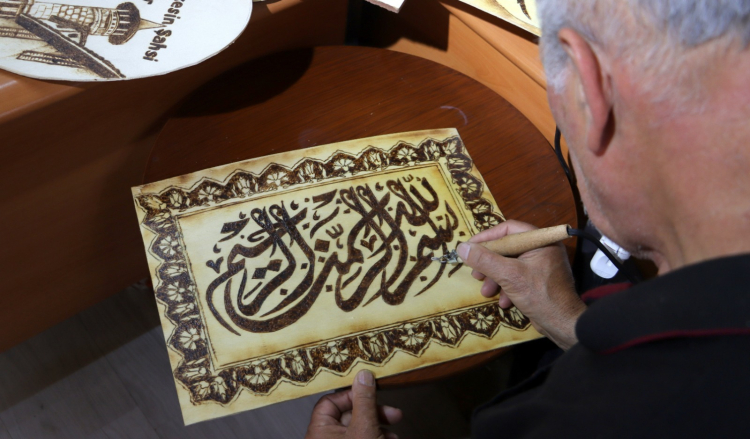 esin Şahsi
بسم الله الرحمن الرحيم